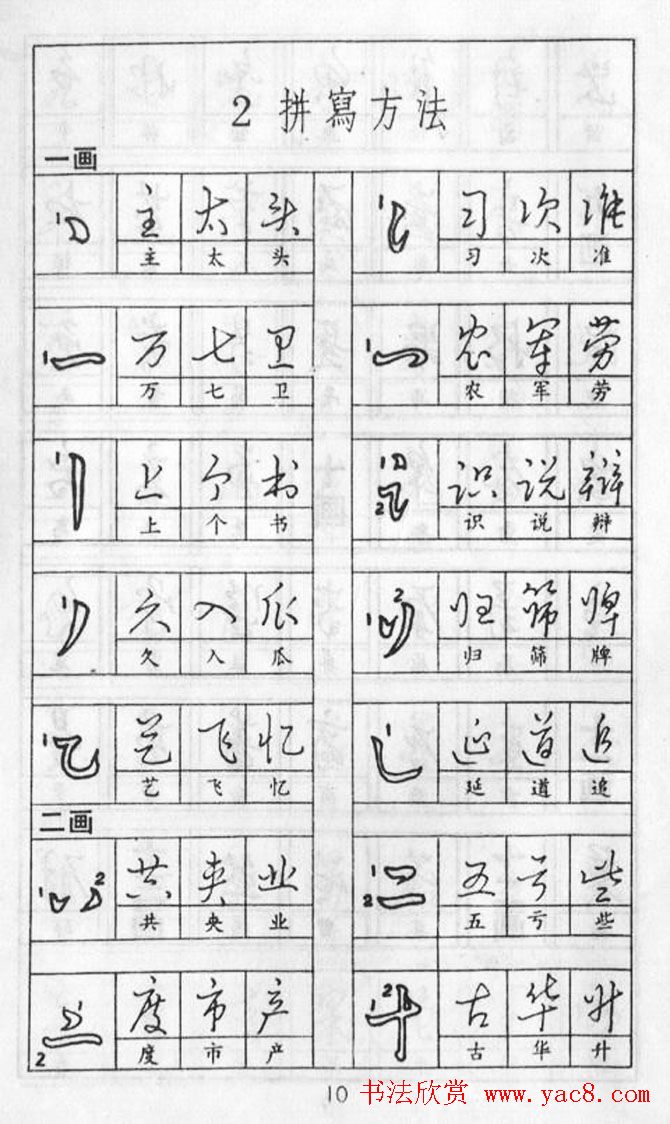 2 拼寫方法
一画
1 主 太 头 1 习 次 准
主 太 头 习 次 准
1 万 七 卫 1 农 军 劳
万 七 卫 农 军 劳
1 上 个 书 1 2 识 说 辩
上 个 书 识 说 辩
1 久 入 瓜 1 2 归 筛 牌
久 入 瓜 归 筛 牌
1 艺 飞 忆 1 延 道 追
艺 飞 忆 延 道 追
二画
1 2 共 央 业 1 2 五 亏 些
共 央 业 五 亏 些
1 2 度 市 产 1 2 古 华 升
度 市 产 古 华 升
10 书法欣赏 www.yac8.com